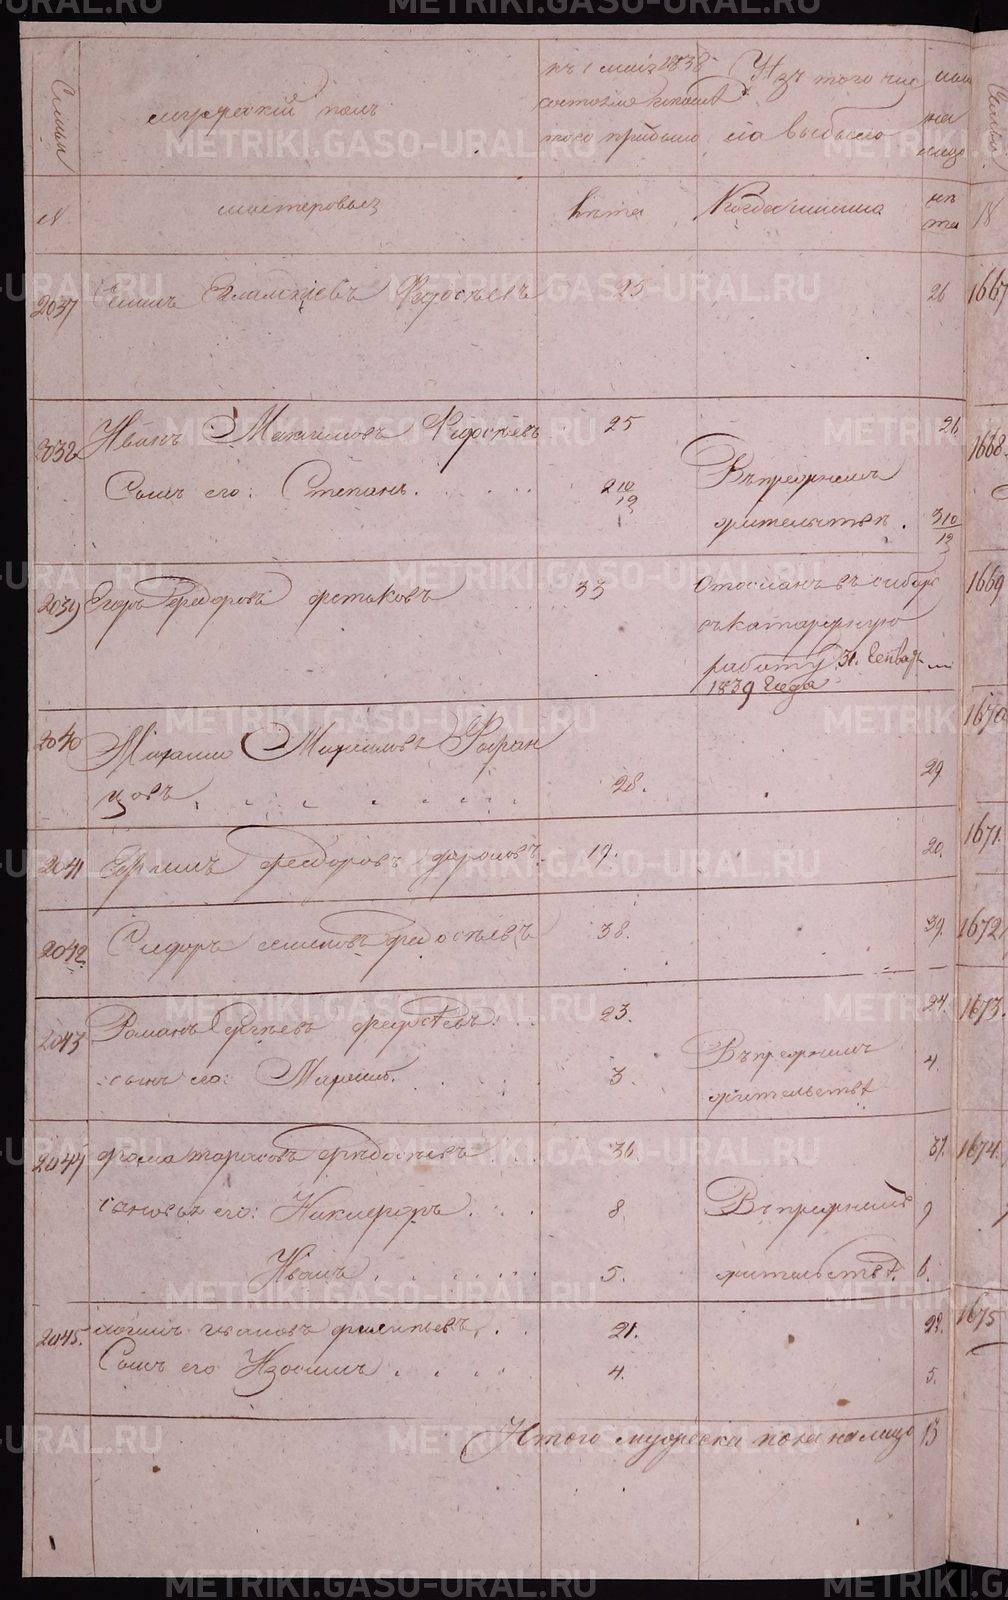 Семьи
мужескій полъ
къ 1 маія 1838
состояло и после
того прибыло
Изъ того числа выбыло
на лицо
№
мастеровые
лѣта
Когда имянно
лѣта
18
2037 Емельяновъ Федосѣевъ 25 26
1667
2038 Иванъ Максимовъ Федосѣевъ 25 26
1668
Сынъ его: Степанъ 2 10/12 Въ прежнемъ жительствѣ. 3 10/12
2039 Егоръ Федоровъ 33 Отосланъ въ сибирь
1669
въ каторжную
работу 31. Генваря
1839 года
2040 Михайловъ Фофан
1670
цовъ 28. 29
2041 Федоровъ 19. 20.
1671
2042 Сидоръ Федосѣевъ 38. 39.
1672
2043 Романъ Сергѣевъ Федосѣевъ 23. 24.
1673.
сынъ его: 3 Въ прежнемъ жительствѣ 4.
2044 Фома Тарасовъ Федосѣевъ 36 37.
1674.
сыновья его: Никифоръ 8 Въ прежнемъ 9
Иванъ 5. жительствѣ. 6.
2045. Логинъ Ивановъ Филипьевъ 21. 22.
1675
Сынъ его Изосимъ 4. 5.
Итого мужеска пола на лицо 13
METRIKI.GASO-URAL.RU